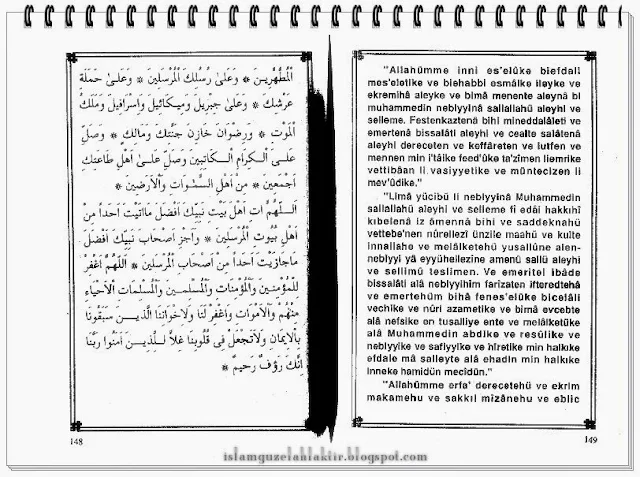 الْمُطَهَّرِينَ * وَعَلَى رُسُلِكَ الْمُرْسَلِينَ * وَعَلَى حَمَلَةِ
عَرْشِكَ * وَعَلَى جِبْرِيلَ وَمِيكَائِيلَ وَإِسْرَافِيلَ وَمَلَكِ
الْمَوْتِ * وَرِضْوَانَ خَازِنِ جَنَّتِكَ وَمَالِكٍ * وَصَلِّ
عَلَى الْكِرَامِ الْكَاتِبِينَ وَصَلِّ عَلَى أَهْلِ طَاعَتِكَ
أَجْمَعِينَ * مِنْ أَهْلِ السَّمٰوَاتِ وَالْأَرَضِينَ *
اَللّٰهُمَّ اٰتِ أَهْلَ بَيْتِ نَبِيِّكَ أَفْضَلَ مَا اٰتَيْتَ أَحَدًا مِنْ
أَهْلِ بُيُوتِ الْمُرْسَلِينَ * وَاجْزِ أَصْحَابَ نَبِيِّكَ أَفْضَلَ
مَا جَازَيْتَ أَحَدًا مِنْ أَصْحَابِ الْمُرْسَلِينَ * اَللّٰهُمَّ اغْفِرْ
لِلْمُؤْمِنِينَ وَالْمُؤْمِنَاتِ وَالْمُسْلِمِينَ وَالْمُسْلِمَاتِ الْأَحْيَاءِ
مِنْهُمْ وَالْأَمْوَاتِ وَاغْفِرْ لَنَا وَلِإِخْوَانِنَا الَّذِينَ سَبَقُونَا
بِالْإِيمَانِ وَلَا تَجْعَلْ فِي قُلُوبِنَا غِلًّا لِلَّذِينَ اٰمَنُوا رَبَّنَا
إِنَّكَ رَؤُفٌ رَحِيمٌ *
148
"Allahümme inni es'elûke biefdali
mes'eletike ve biehabbi esmâike ileyke ve
ekremihâ aleyke ve bimâ menente aleynâ bi
muhammedin nebiyyinâ sallallahü aleyhi ve
selleme. Festenkaztenâ bihî mineddalâleti ve
emertenâ bissalâti aleyhi ve cealte salâtenâ
aleyhi dereceten ve keffâreten ve lutfen ve
mennen min i'tâike feed'ûke ta'zîmen liemrike
vettibâan li vasiyyetike ve müntecizen li
mev'ûdike."
"Limâ yücibü li nebiyyinâ Muhammedin
sallallahü aleyhi ve selleme fî edâi hakkıhî
kıbelenâ iz âmennâ bihî ve saddeknahü
vettebe'nen nûrellezî ünzile maahü ve kulte
innallahe ve melâiketehü yusallûne alen-
nebiyyi yâ eyyüheilezine amenû sallü aleyhi
ve sellimû teslimen. Ve emeritel ibâde
bissalâti alâ nebiyyihim farîzaten ifteredtehâ
ve emertehüm bihâ fenes'elûke bicelâli
vechike ve nûri azametike ve bimâ evcebte
alâ nefsike en tusalliye ente ve melâiketüke
alâ Muhammedin abdike ve resûlike ve
nebiyyike ve safiyyike ve hîretike min halkıke
efdale mâ salleyte alâ ehadin min halkıke
inneke hamidün mecîdün."
"Allahümme erfa' derecetehü ve ekrim
makamehu ve sakkıl mizânehu ve eblic
149
islamguzelahlaktir.blogspot.com